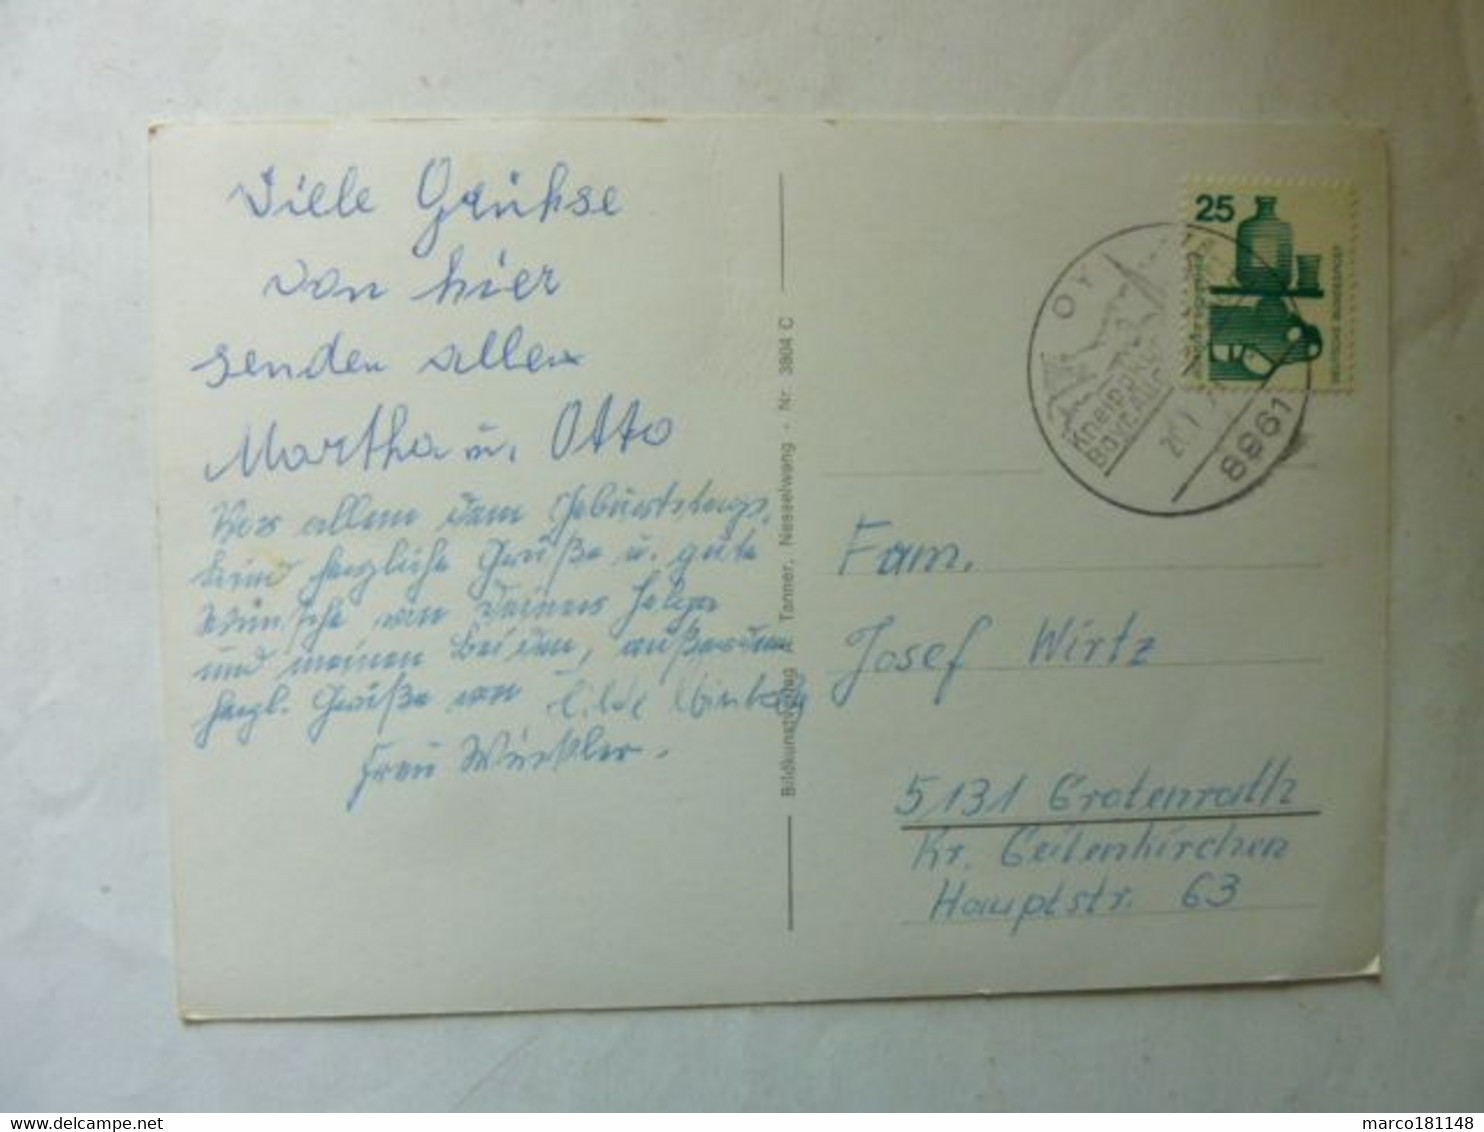 Viele Grühse
von hier
senden allen
Martha u. Otto
Vor allem dem Geburtstags-
kind herzliche Grüße u. gute
Wünsche von Deiner Helga
und meinen beiden, außerdem
herzl. Grüße von
Frau Winkler.
Bildkunstverlag A. Tanner, Nesselwang - Nr. 3804 C
25
DEUTSCHE BUNDESPOST
OY
8961
Fam.
Josef Wirtz
5131 Grotenrath
Kr. Geilenkirchen
Hauptstr. 63
delcampe.net
marco181148